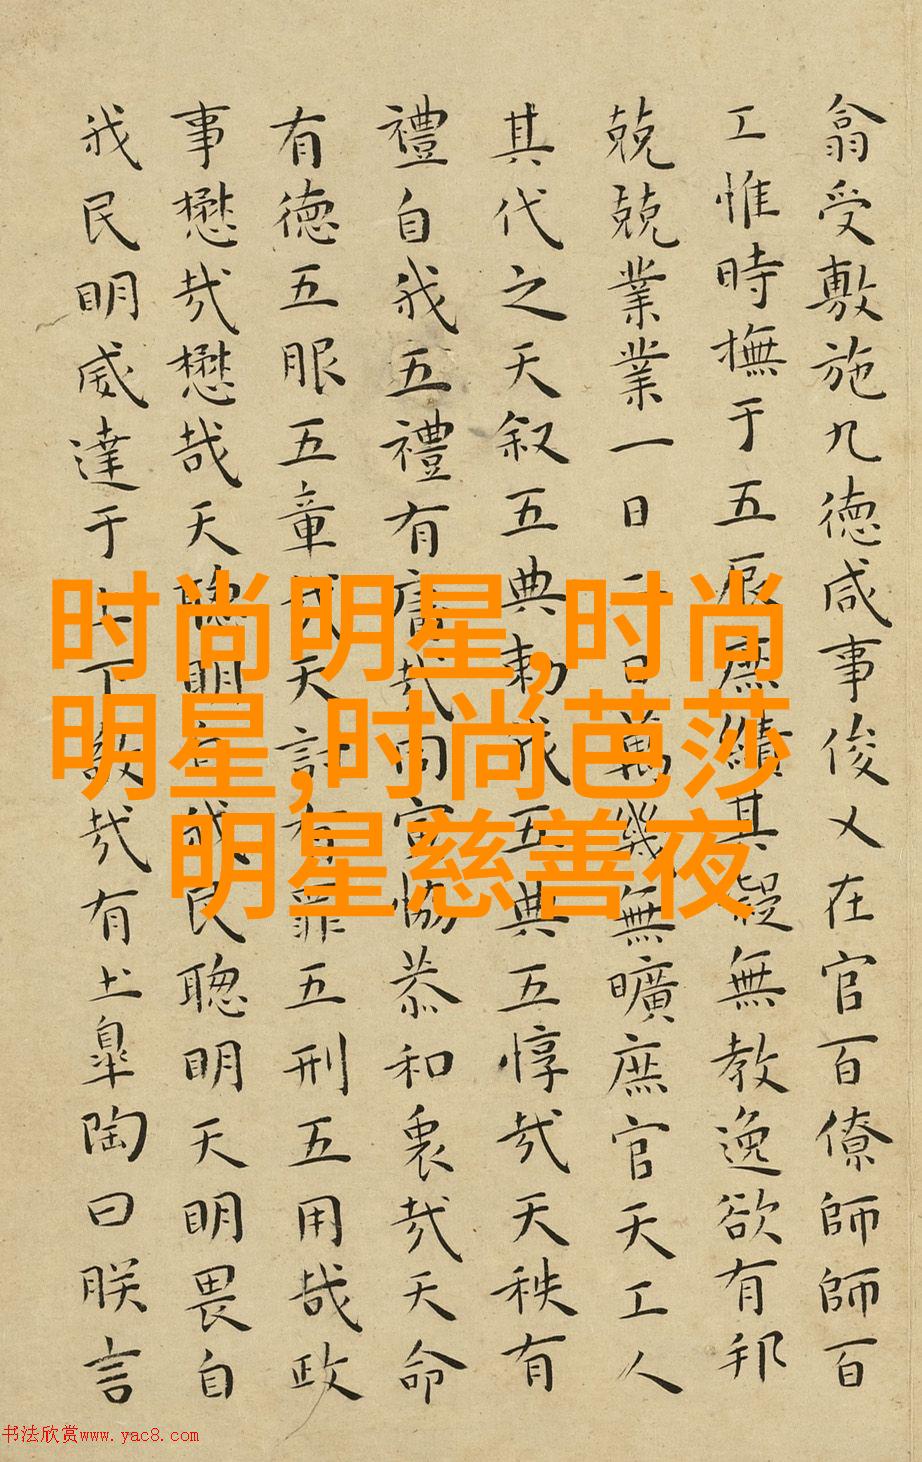 翕受敷施九德咸事俊乂在官百僚師師百
工惟時撫于五辰庶績其凝無教逸欲有邦
兢兢業業一日二日萬幾無曠庶官天工人
其代之天叙五典勑我五典五惇哉天秩有
禮自我五禮有庸哉同寅協恭和衷哉天命
有德五服五章哉天討有罪五刑五用哉政
事懋哉懋哉天聰明自我民聰明天明畏自
我民明威達于上下敬哉有土皋陶曰朕言
时尚明星,时尚
明星,时尚芭莎
明星慈善夜
书法欣赏www.yac8.com